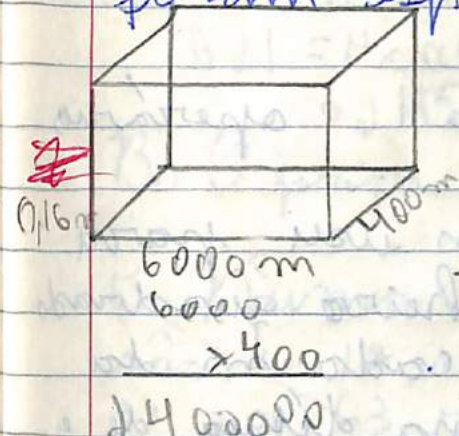 0,16m
400m
6000m
6000
×400
2400000